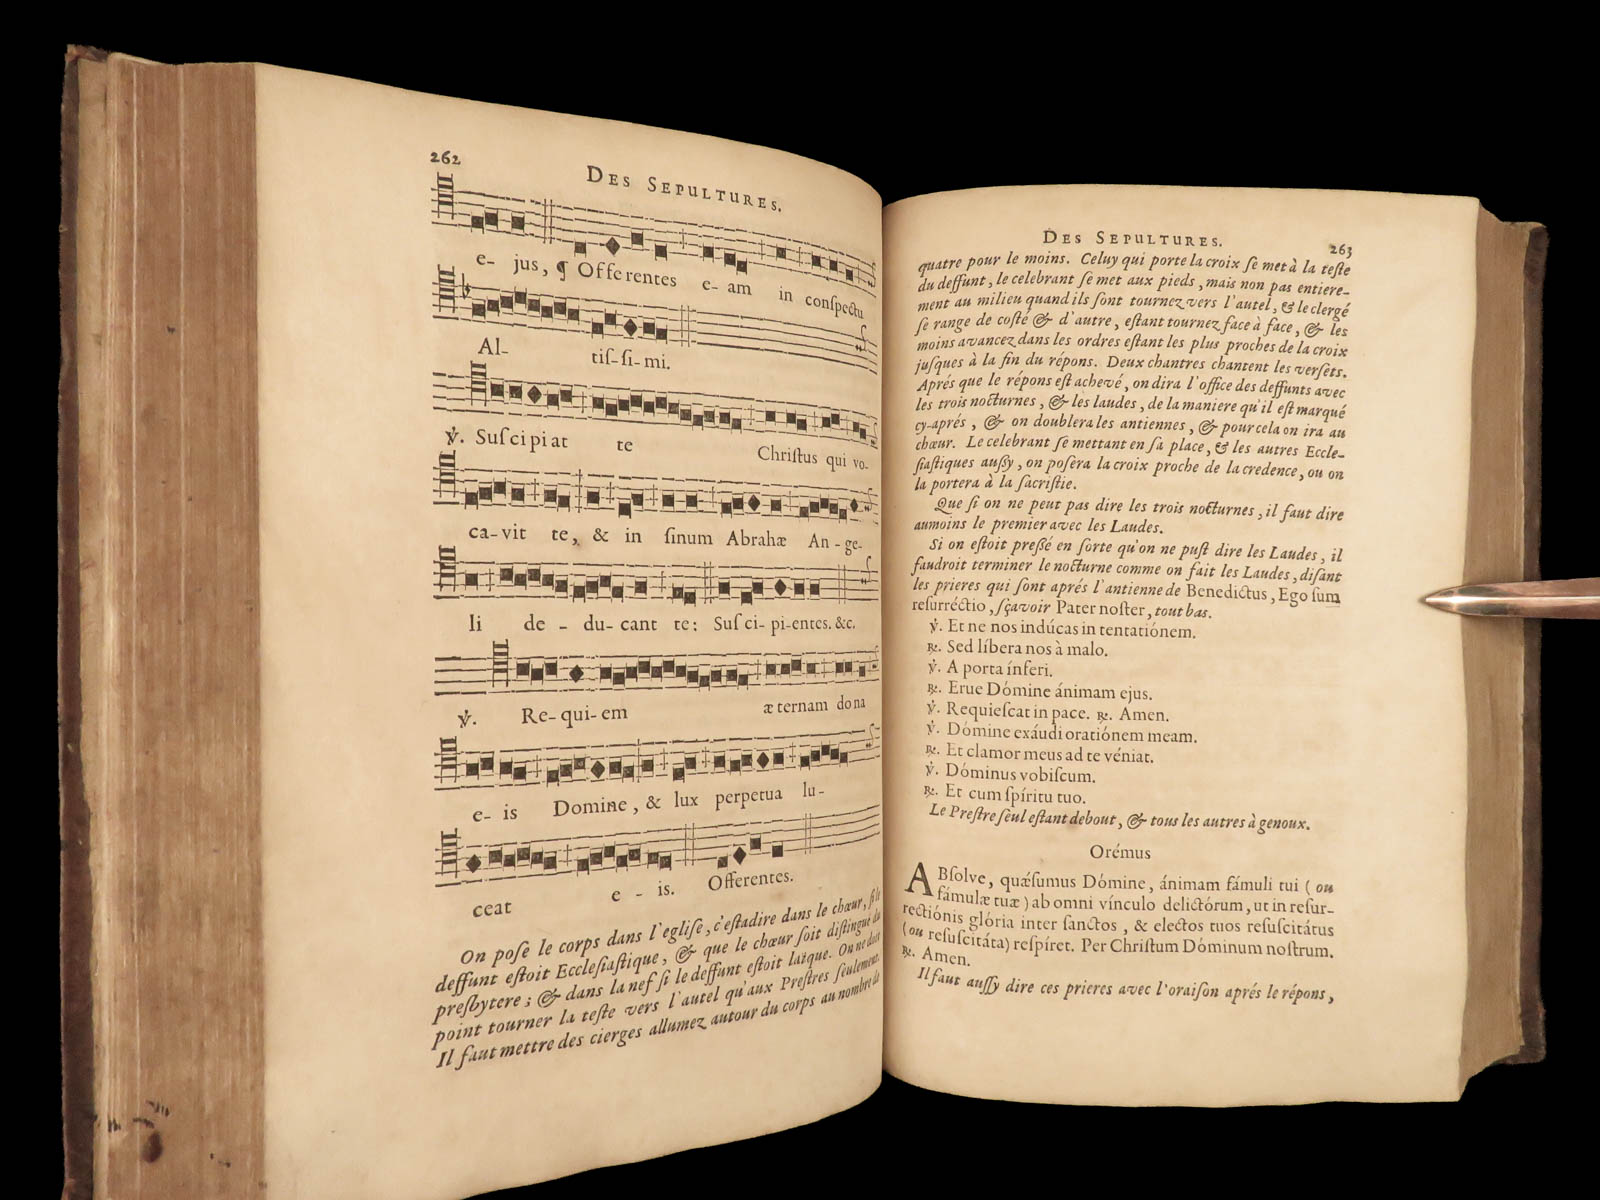 262
DES SEPULTURES.
e- jus, ¶ Offerentes e- am in conſpectu
Al- tiſ-ſi-mi.
℣. Suſcipiat te Chriſtus qui vo-
ca-vit te, & in ſinum Abrahæ An-ge-
li de - du-cant te: Suſci-pi-entes. &c.
℣. Re-qui-em æternam dona
e- is Domine, & lux perpetua lu-
ceat e - is. Offerentes.
On poſe le corps dans l'egliſe, c'eſtadire dans le chœur, ſi le
deffunt eſtoit Eccleſiaſtique, & que le chœur ſoit diſtingué du
preſbytere; & dans la nef ſi le deffunt eſtoit laïque. On ne doit
point tourner la teſte vers l'autel qu'aux Preſtres ſeulement.
Il faut mettre des cierges allumez autour du corps au nombre de
DES SEPULTURES.
263
quatre pour le moins. Celuy qui porte la croix ſe met à la teſte
du deffunt, le celebrant ſe met aux pieds, mais non pas entiere-
ment au milieu quand ils ſont tournez vers l'autel, & le clergé
ſe range de coſté & d'autre, eſtant tournez face à face, & les
moins avancez dans les ordres eſtant les plus proches de la croix
juſques à la fin du répons. Deux chantres chantent les verſets.
Aprés que le répons eſt achevé, on dira l'office des deffunts avec
les trois nocturnes, & les laudes, de la maniere qu'il eſt marqué
cy-aprés, & on doublera les antiennes, & pour cela on ira au
chœur. Le celebrant ſe mettant en ſa place, & les autres Eccle-
ſiaſtiques auſſy, on poſera la croix proche de la credence, ou on
la portera à la ſacriſtie.
Que ſi on ne peut pas dire les trois nocturnes, il faut dire
aumoins le premier avec les Laudes.
Si on eſtoit preßé en ſorte qu'on ne puſt dire les Laudes, il
faudroit terminer le nocturne comme on fait les Laudes, diſant
les prieres qui ſont aprés l'antienne de Benedictus, Ego ſum
reſurréctio, ſçavoir Pater noſter, tout bas.
℣. Et ne nos indúcas in tentatiónem.
℟. Sed líbera nos à malo.
℣. A porta ínferi.
℟. Erue Dómine ánimam ejus.
℣. Requieſcat in pace. ℟. Amen.
℣. Dómine exáudi oratiónem meam.
℟. Et clamor meus ad te véniat.
℣. Dóminus vobiſcum.
℟. Et cum ſpíritu tuo.
Le Preſtre ſeul eſtant debout, & tous les autres à genoux.
Orémus
ABſolve, quǽſumus Dómine, ánimam fámuli tui (ou
fámulæ tuæ) ab omni vínculo delictórum, ut in reſur-
rectiónis glória inter ſanctos, & electos tuos reſuſcitátus
(ou reſuſcitáta) reſpíret. Per Chriſtum Dóminum noſtrum.
℟. Amen.
Il faut auſſy dire ces prieres avec l'oraiſon aprés le répons,